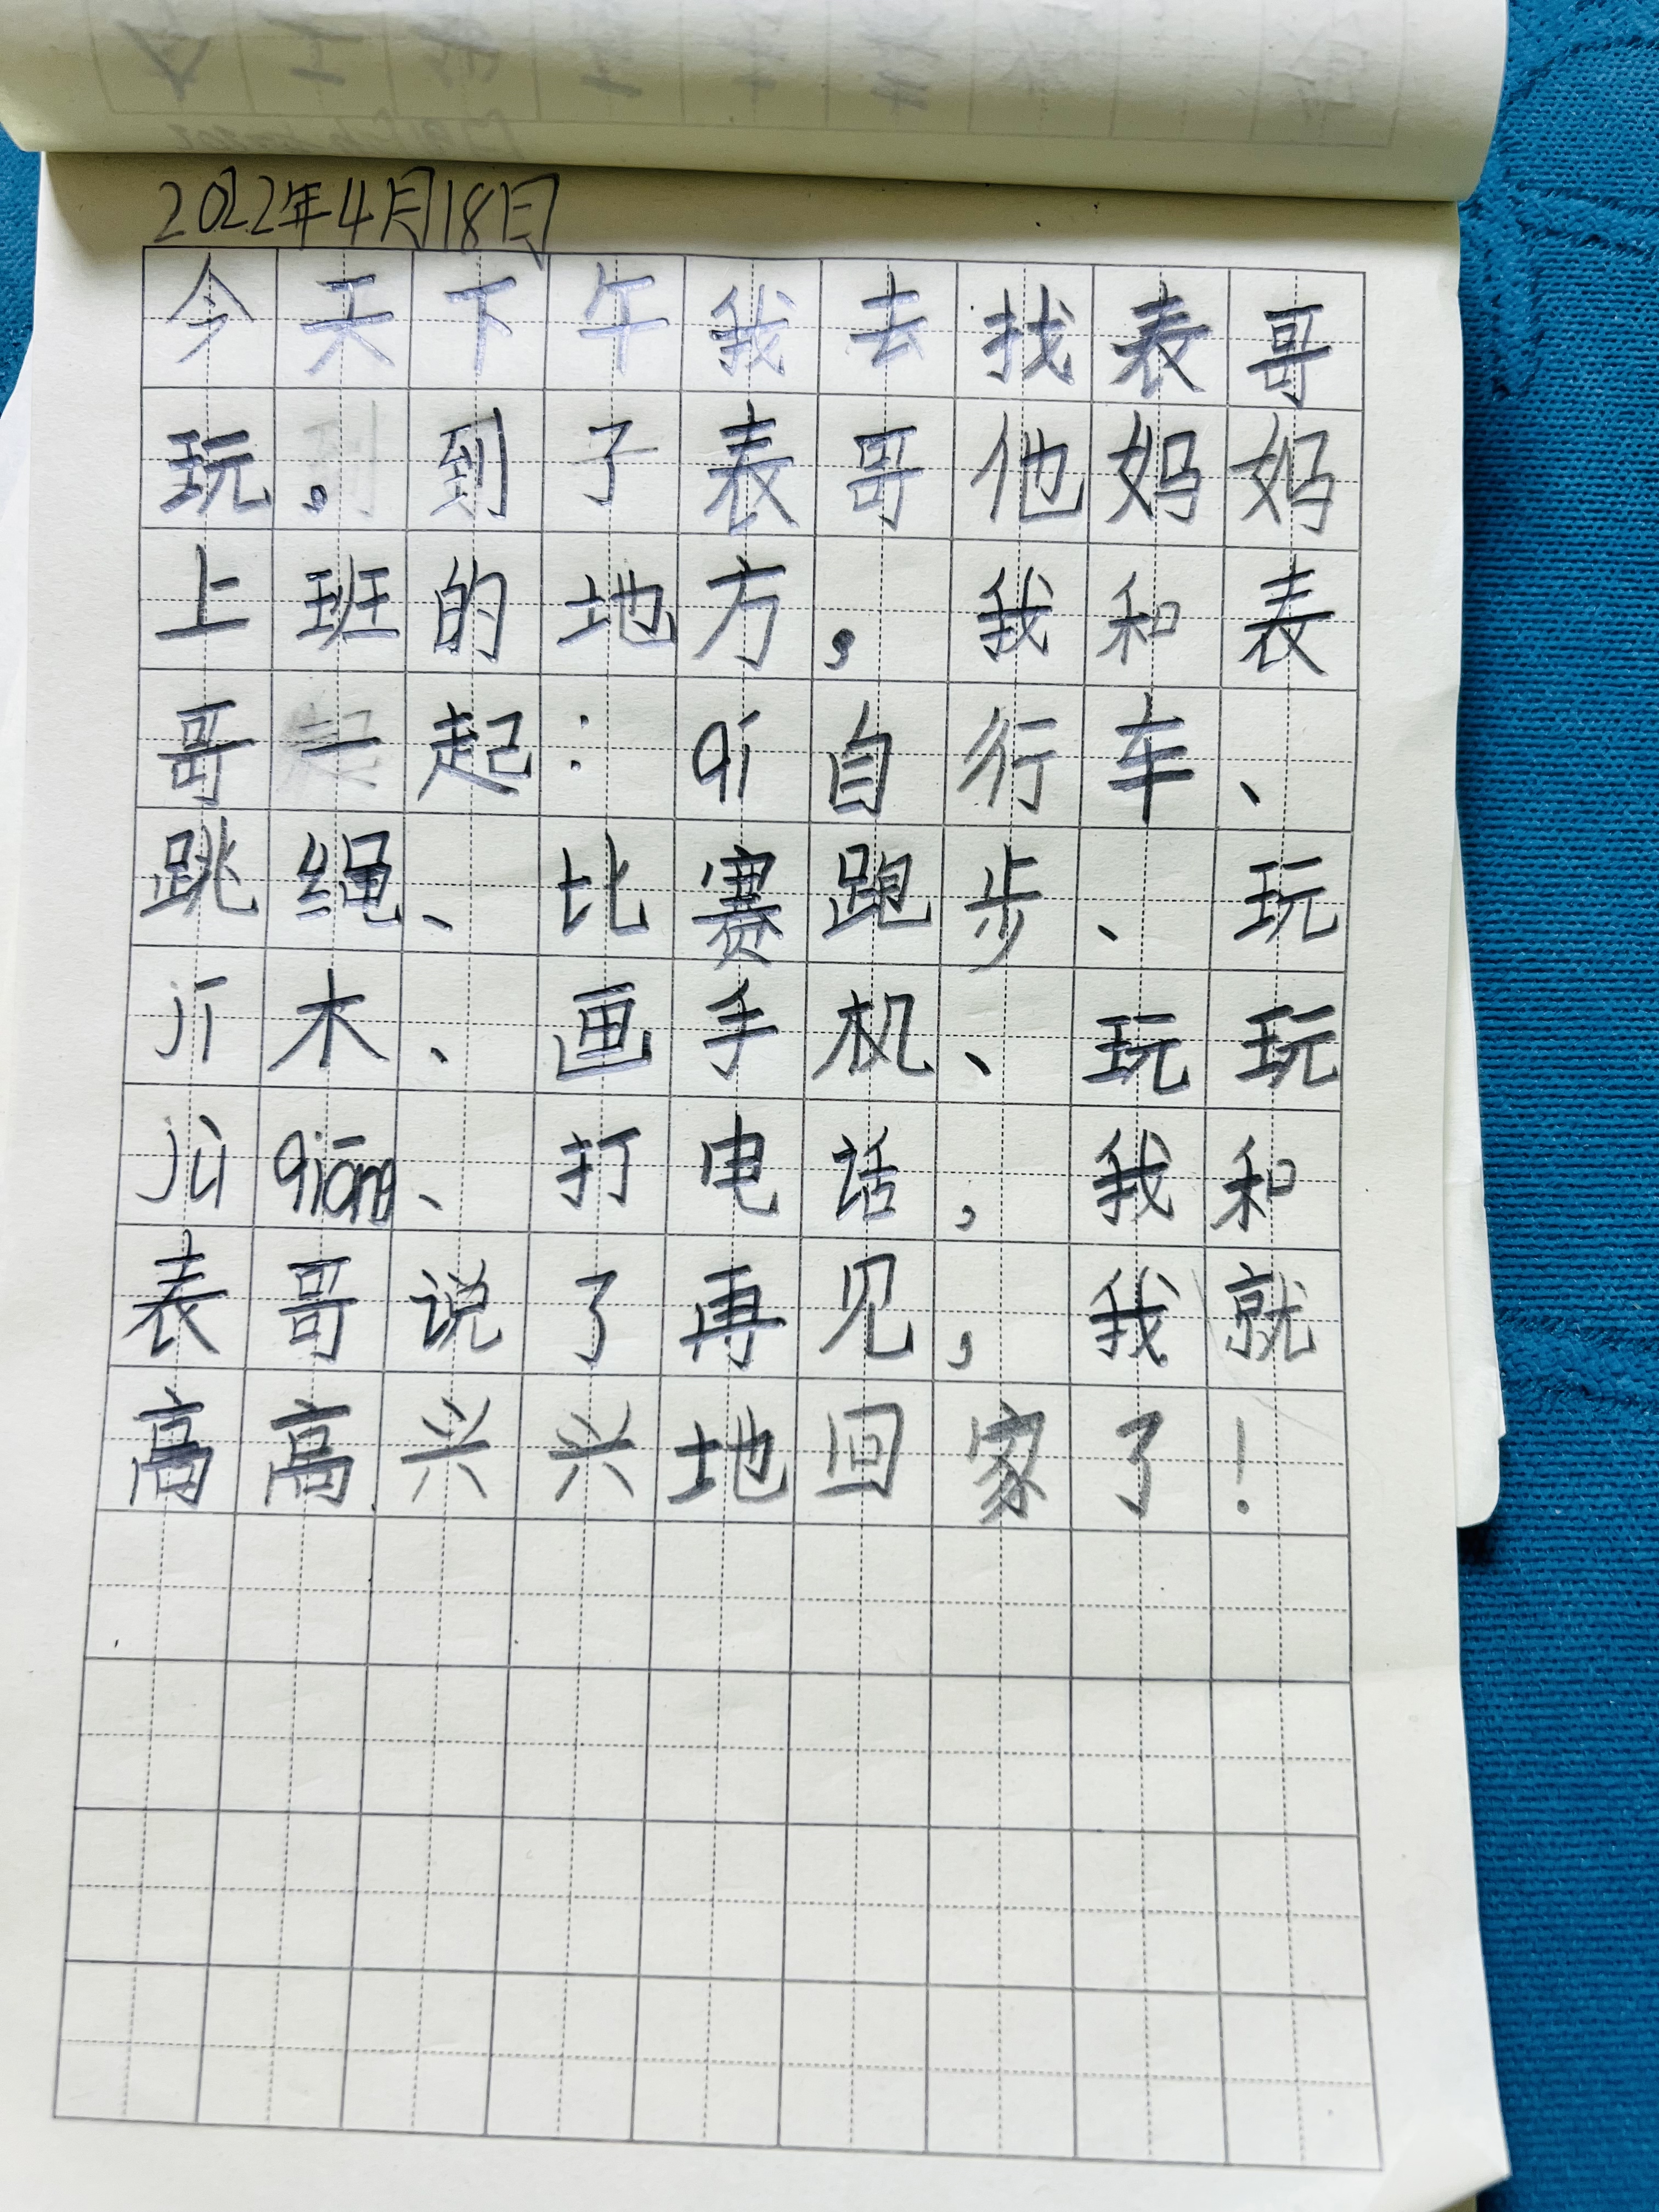 2022年4月18日
今天下午我去找表哥
玩，到了表哥他妈妈
上班的地方，我和表
哥一起：qí自行车、
跳绳、比赛跑步、玩
jī木、画手机、玩玩
jù qiāng、打电话，我和
表哥说了再见，我就
高高兴兴地回家了！